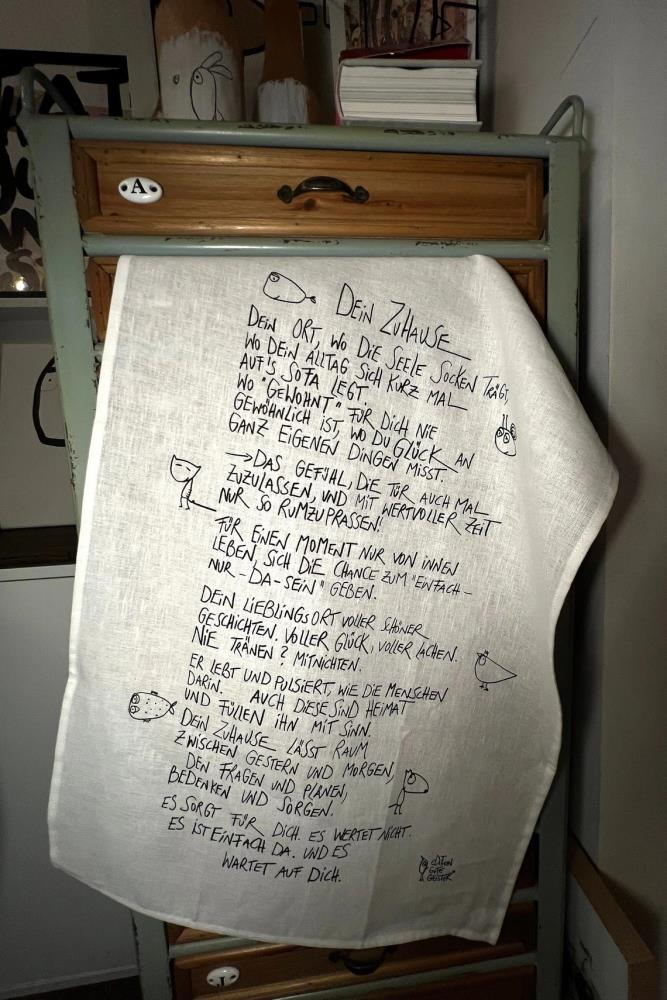 A
DEIN ZUHAUSE
DEIN ORT, WO DIE SEELE SOCKEN TRÄGT,
WO DEIN ALLTAG SICH KURZ MAL
AUF'S SOFA LEGT.
WO "GEWOHNT" FÜR DICH NIE
GEWÖHNLICH IST, WO DU GLÜCK AN
GANZ EIGENEN DINGEN MISST.
→DAS GEFÜHL, DIE TÜR AUCH MAL
ZUZULASSEN, UND MIT WERTVOLLER ZEIT
NUR SO RUMZUPRASSEN!
FÜR EINEN MOMENT NUR VON INNEN
LEBEN, SICH DIE CHANCE ZUM "EINFACH-
NUR-DA-SEIN" GEBEN.
DEIN LIEBLINGSORT VOLLER SCHÖNER
GESCHICHTEN. VOLLER GLÜCK, VOLLER LACHEN.
NIE TRÄNEN? MITNICHTEN.
ER LEBT UND PULSIERT, WIE DIE MENSCHEN
DARIN. AUCH DIESE SIND HEIMAT
UND FÜLLEN IHN MIT SINN.
DEIN ZUHAUSE LÄSST RAUM
ZWISCHEN GESTERN UND MORGEN,
DEN FRAGEN UND PLÄNEN,
BEDENKEN UND SORGEN.
ES SORGT FÜR DICH. ES WERTET NICHT.
ES IST EINFACH DA. UND ES
WARTET AUF DICH.
EDITION
GUTE
GEISTER